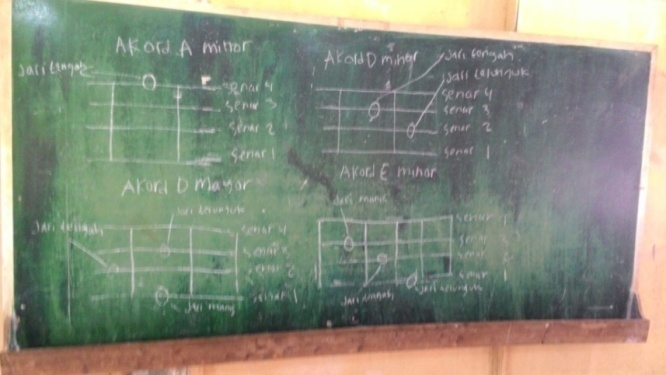 Akord A minor
Jari tengah
senar 4
senar 3
senar 2
senar 1
Akord D minor
Jari tengah
Jari telunjuk
senar 4
senar 3
senar 2
senar 1
Akord D Mayor
Jari telunjuk
Jari tengah
senar 4
senar 3
senar 2
senar 1
Jari manis
Akord E minor
Jari manis
senar
senar
senar 2
senar 1
Jari tengah
Jari telunjuk